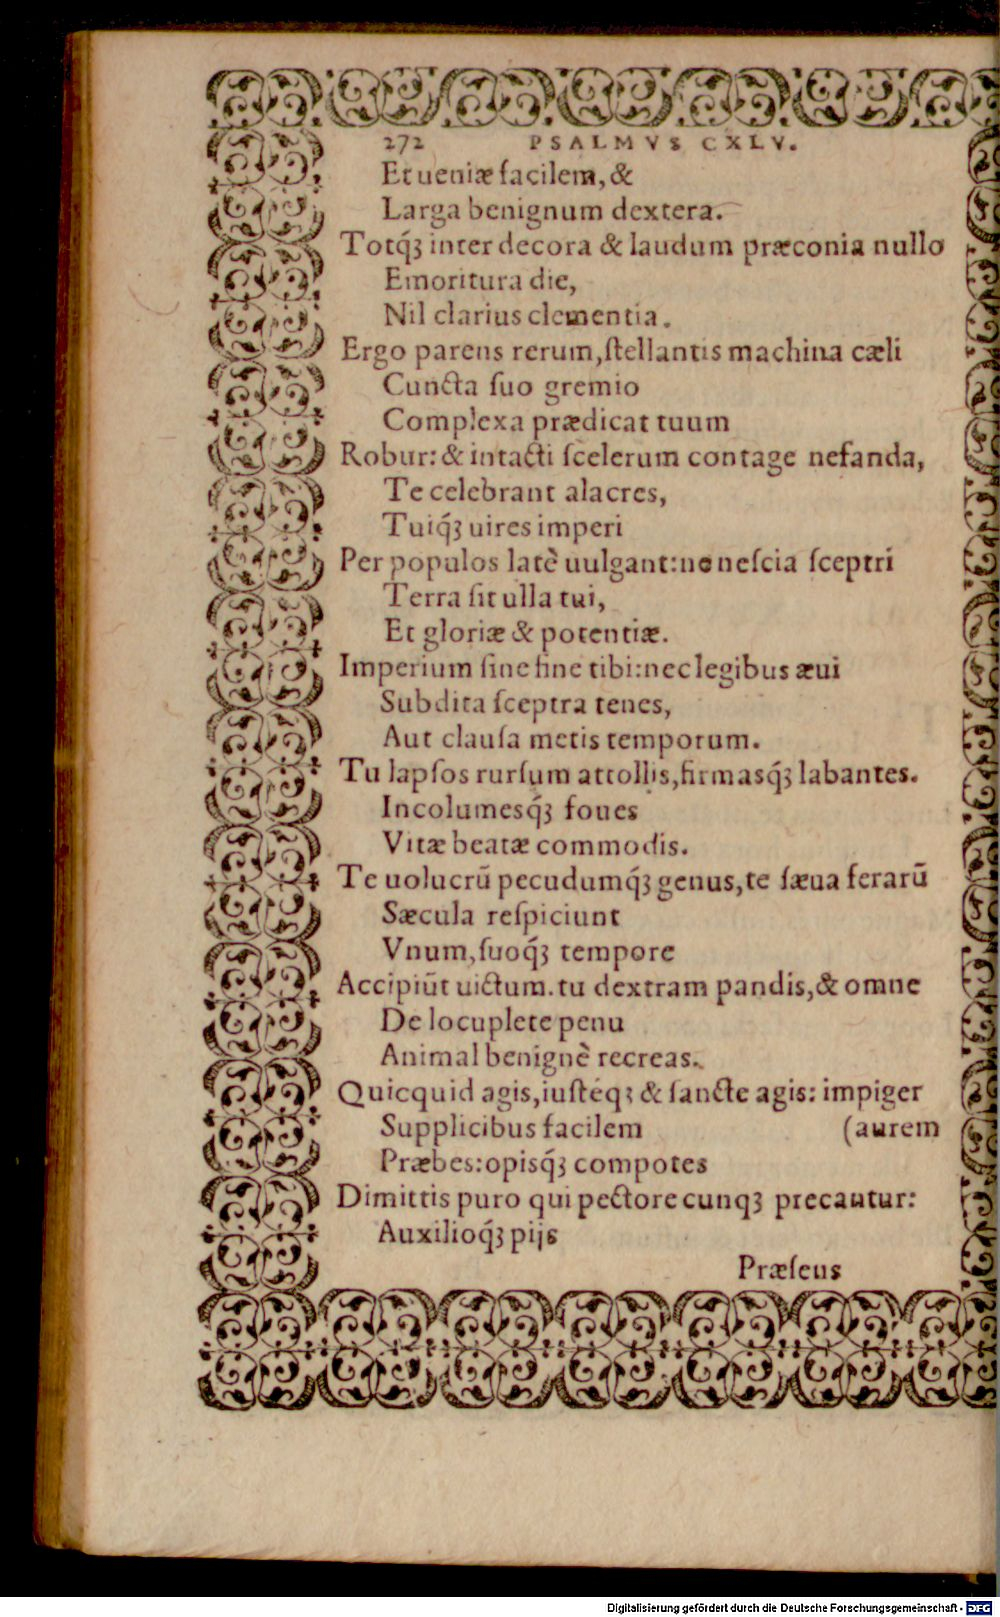 272 PSALMVS CXLV.
Et ueniæ facilem, &
Larga benignum dextera.
Totq́ꝫ inter decora & laudum præconia nullo
Emoritura die,
Nil clarius clementia.
Ergo parens rerum, ſtellantis machina cæli
Cuncta ſuo gremio
Complexa prædicat tuum
Robur: & intacti ſcelerum contage nefanda,
Te celebrant alacres,
Tuiq́ꝫ uires imperi
Per populos latè uulgant: ne neſcia ſceptri
Terra ſit ulla tui,
Et gloriæ & potentiæ.
Imperium ſine fine tibi: nec legibus æui
Subdita ſceptra tenes,
Aut clauſa metis temporum.
Tu lapſos rurſum attollis, firmasq́ꝫ labantes.
Incolumesq́ꝫ foues
Vitæ beatæ commodis.
Te uolucrū pecudumq́ꝫ genus, te ſæua ferarū
Sæcula reſpiciunt
Vnum, ſuoq́ꝫ tempore
Accipiūt uictum. tu dextram pandis, & omne
De locuplete penu
Animal benignè recreas.
Quicquid agis, iuſteqꝫ & ſancte agis: impiger
Supplicibus facilem (aurem
Præbes: opisq́ꝫ compotes
Dimittis puro qui pectore cunqꝫ precautur:
Auxilioq́ꝫ pijs
Præſeus
Digitalisierung gefördert durch die Deutsche Forschungsgemeinschaft - DFG